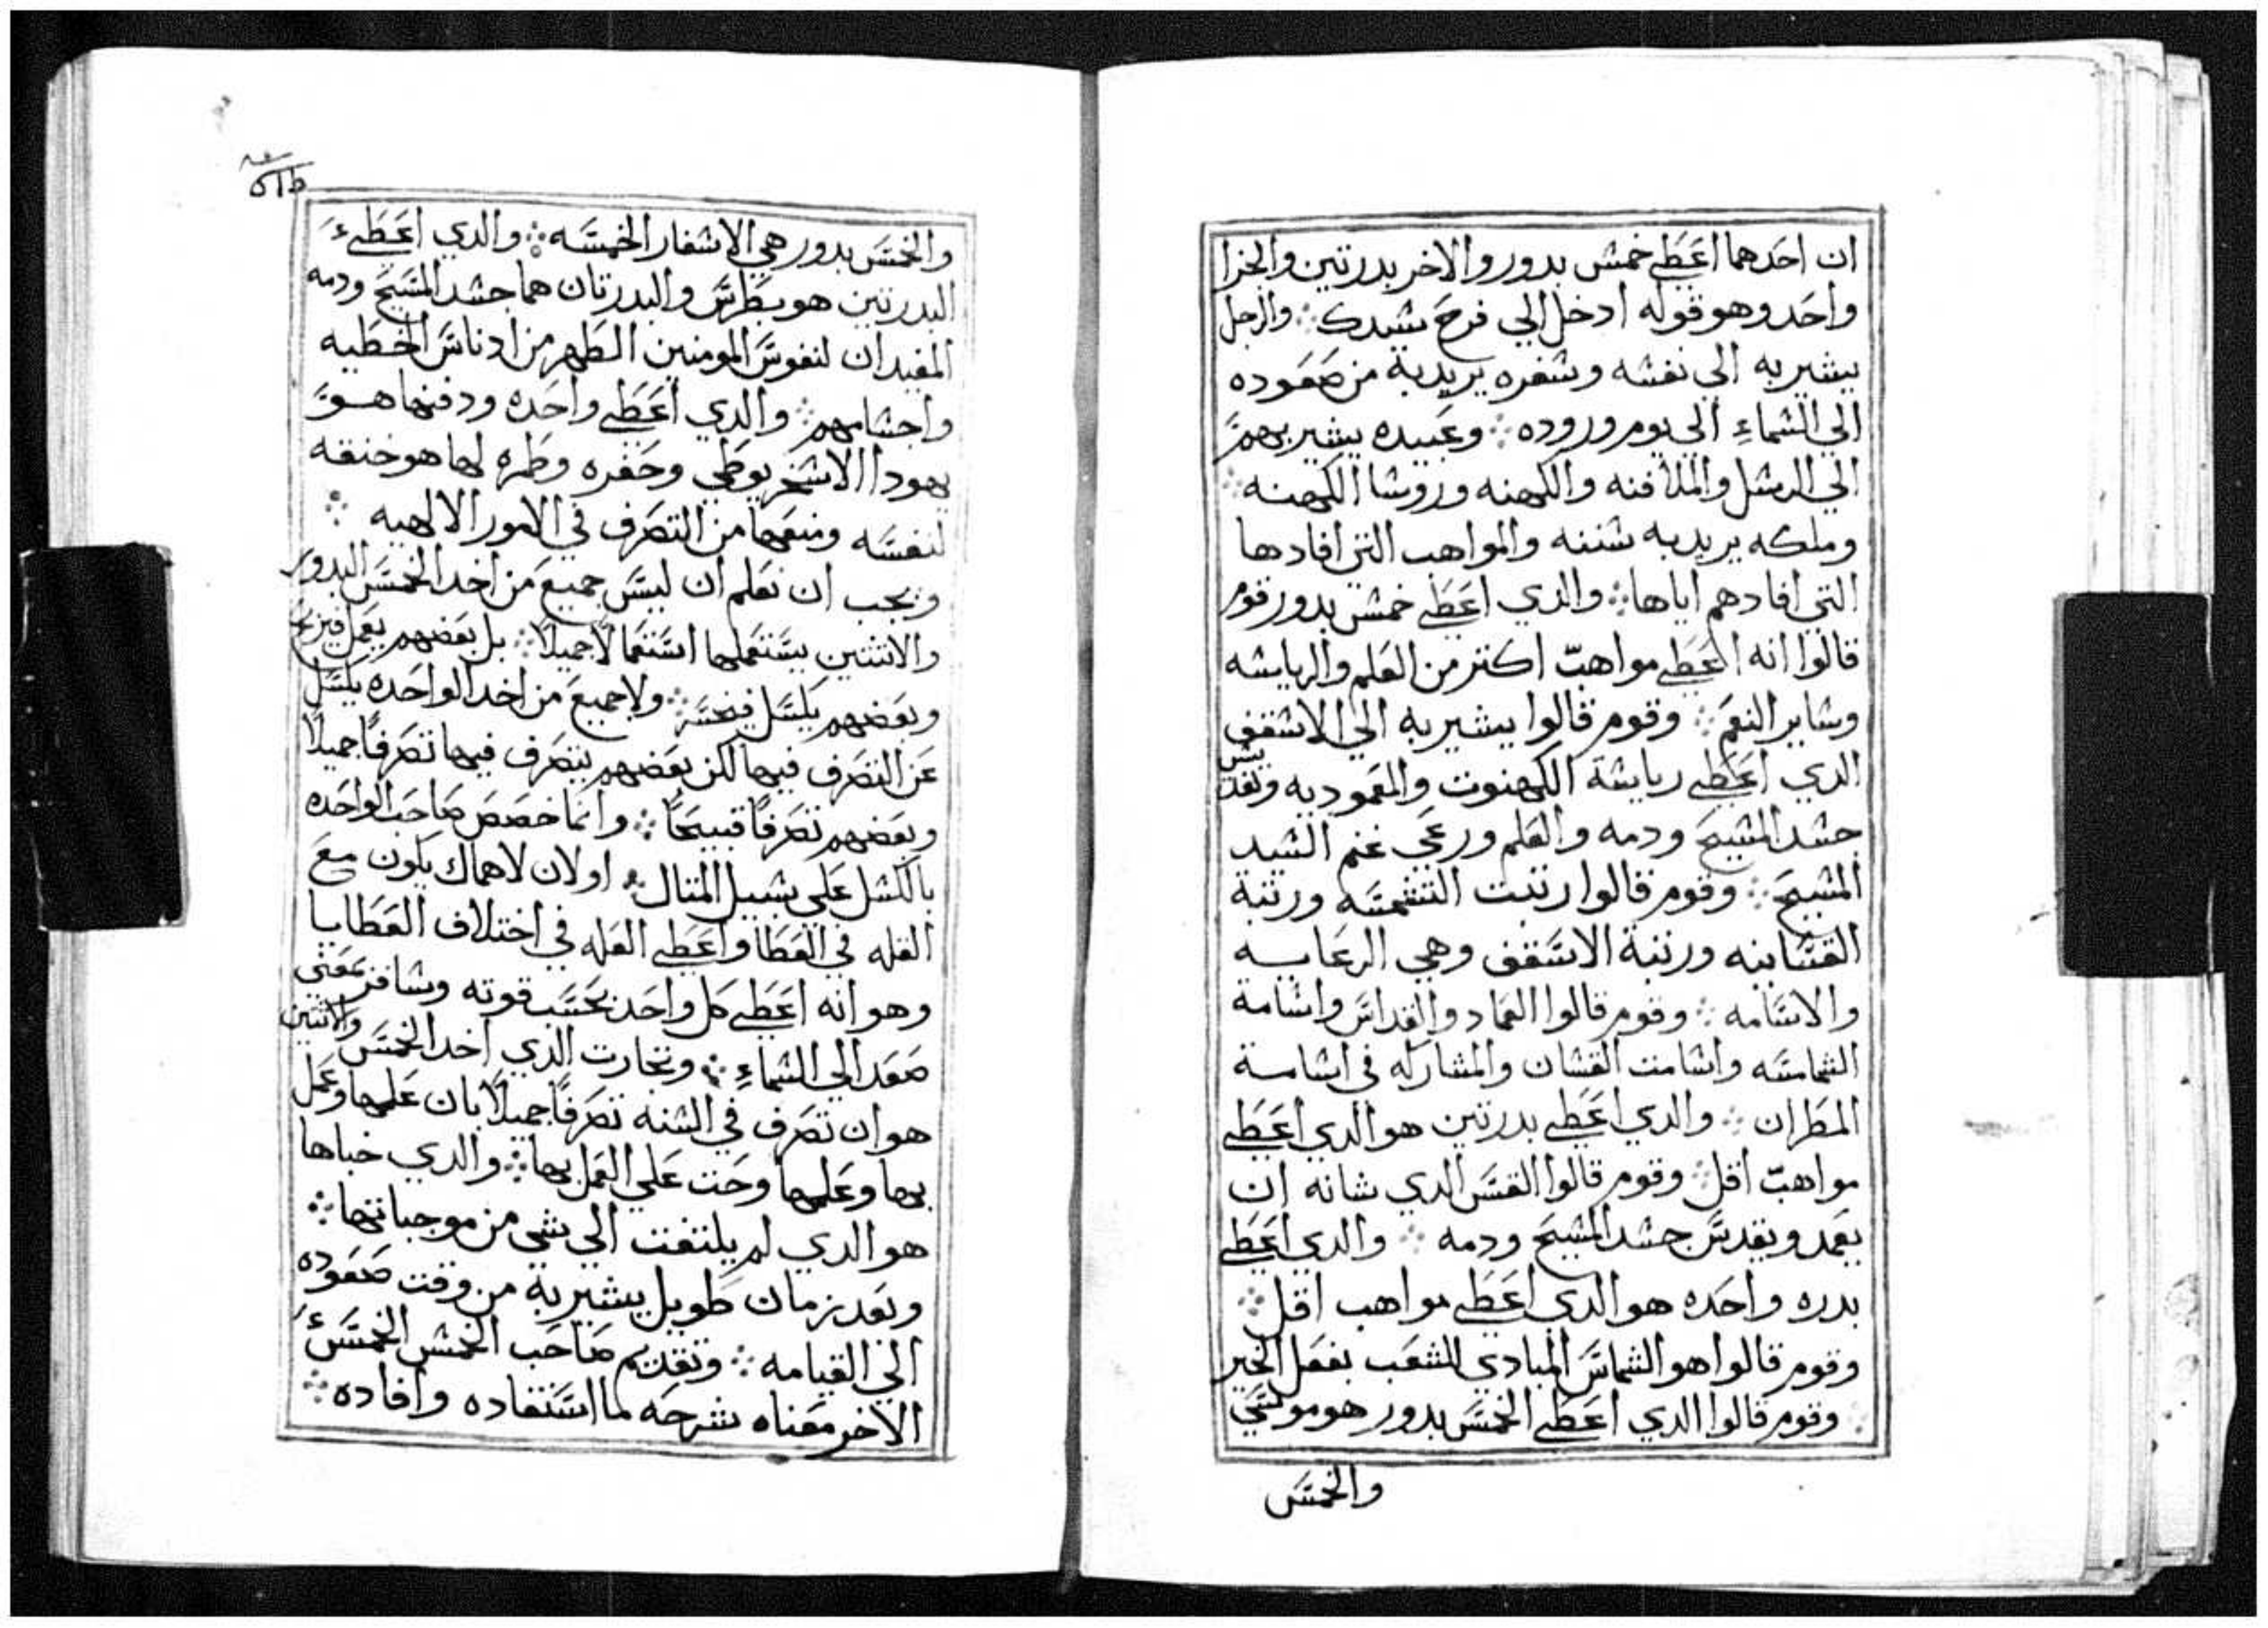 ان احدهما اعطي خمس بدور والاخر بدرتين والجزا
واحد وهو قوله ادخل الي فرح سيدك ؞ والرجل
يشير به الي نفسه وسفره يريد به من صعوده
الي السماء الي يوم وروده ؞ وعبيده يشير بهم
الي الرسل والملافنه والكهنه وروسا الكهنه ؞
وملكه يريد به سننه والمواهب التي افادها
التي افادهم اياها ؞ والدي اعطي خمس بدور قوم
قالوا انه اعطي مواهب اكتر من العلم والرياسه
وساير النعم ؞ وقوم قالوا يشير به الي الاسقف
الدي اعطي رياسة الكهنوت والمعموديه وتقديس
جسد المسيح ودمه والعلم ورعي غنم السيد
المسيح ؞ وقوم قالوا رتبت الشمسه ورتبة
القساينه ورتبة الاسقف وهي الرعايه
والاسامه ؞ وقوم قالوا العماد والقداس واسامة
الشمامسه واسامت القسان والمشاركه في اسامة
المطران ؞ والدي اعطي بدرتين هو الدي اعطي
مواهب اقل ؞ وقوم قالوا القس الدي شانه ان
يعمد ويقدس جسد المسيح ودمه ؞ والدي اعطي
بدره واحده هو الدي اعطي مواهب اقل ؞
وقوم قالوا هو الشماس المنادي للشعب بفعل الخير
؞ وقوم قالوا الدي اعطي الخمس بدور هو موسي
والخمس
والخمس بدور هي الاسفار الخمسه ؞ والدي اعطي
البدرتين هو بطرس والبدرتان هما جسد المسيح ودمه
المفيدان لنفوس المومنين الطهر من ادناس الخطيه
واجسامهم ؞ والدي اعطي واحده ودفنها هو
يهودا الاسخريوطي وحفره وطمره لها هو خنقه
لنفسه ومنعها من التصرف في الامور الالهيه ؞
ويجب ان نعلم ان ليس جميع من اخد الخمس البدور
والاتنتين يستعملها استعمالا جميلا ؞ بل بعضهم يعمل فيربح
وبعضهم يكسل فيخسر ؞ ولا جميع من اخد الواحده يكسل
عن التصرف فيها لكن بعضهم يتصرف فيها تصرفا جميلا
وبعضهم تصرفا قبيحا ؞ وانما خصص صاحب الواحده
بالكسل علي سبيل المتال ؞ اولان لاهماك يكون مع
القله في العطا واعطي العله في اختلاف العطايا
وهو انه اعطي كل واحد بحسب قوته وسافر بمعني
صعد الي السماء ؞ وتجارت الدي اخد الخمس والاتنتين
هو ان تصرف في السنه تصرفا جميلا بان علمها وعمل
بها وعلمها وحت علي العمل بها ؞ والدي خباها
هو الدي لم يلتفت الي شي من موجباتها ؞
وبعد زمان طويل يشير به من وقت صعوده
الي القيامه ؞ وتقديم صاحب الخمس الخمس
الاخر معناه شرحه لما استفاده وافاده ؞